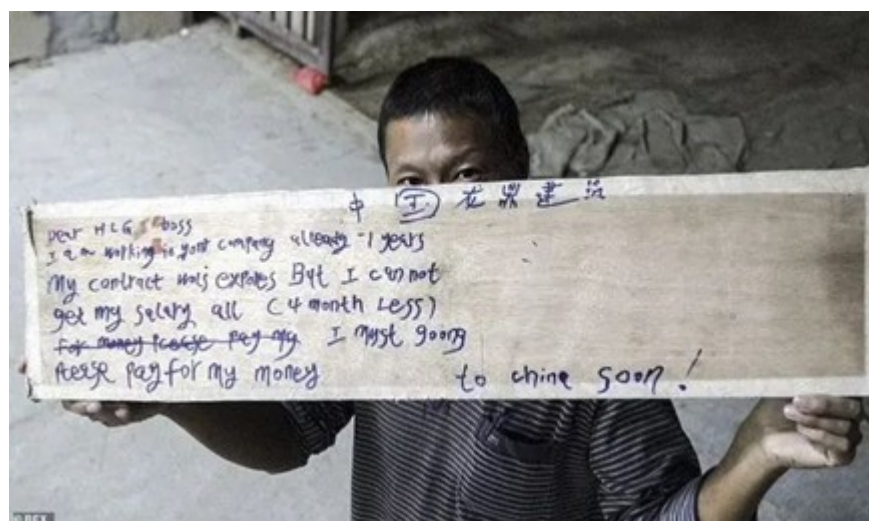 中 工 龙 鼎 建 筑
Dear HLG boss
I am working in your company already 1 years
My contract was expores But I can not
get my salary all (4 month Less)
for money Please pay my I myst goong
Please pay for my money to chine soon!
REX